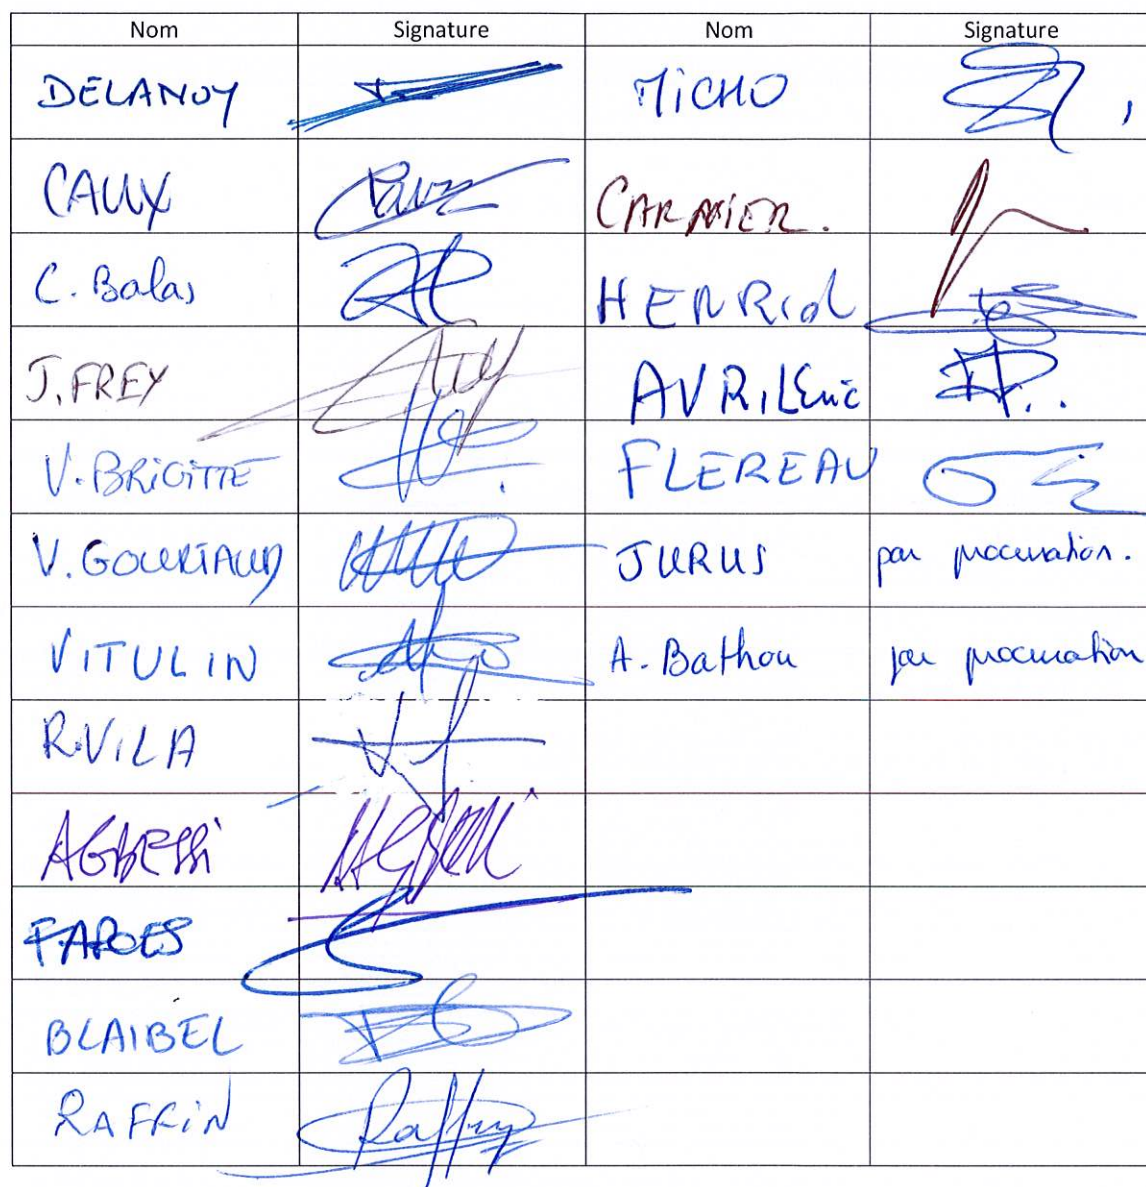 Nom Signature Nom Signature
DELANOY MICHO
CAUX Caux CARMIER.
C. Balas HENRIOL
J. FREY AVRIL Eric
V. BRIGITTE FLEREAU
V. GOURTAUD JURUS par procuration.
VITULIN A. Bathou par procuration
R.VILA
AGBESSI AGBESSI
FAROES
BLAIBEL
RAFFIN Raffin